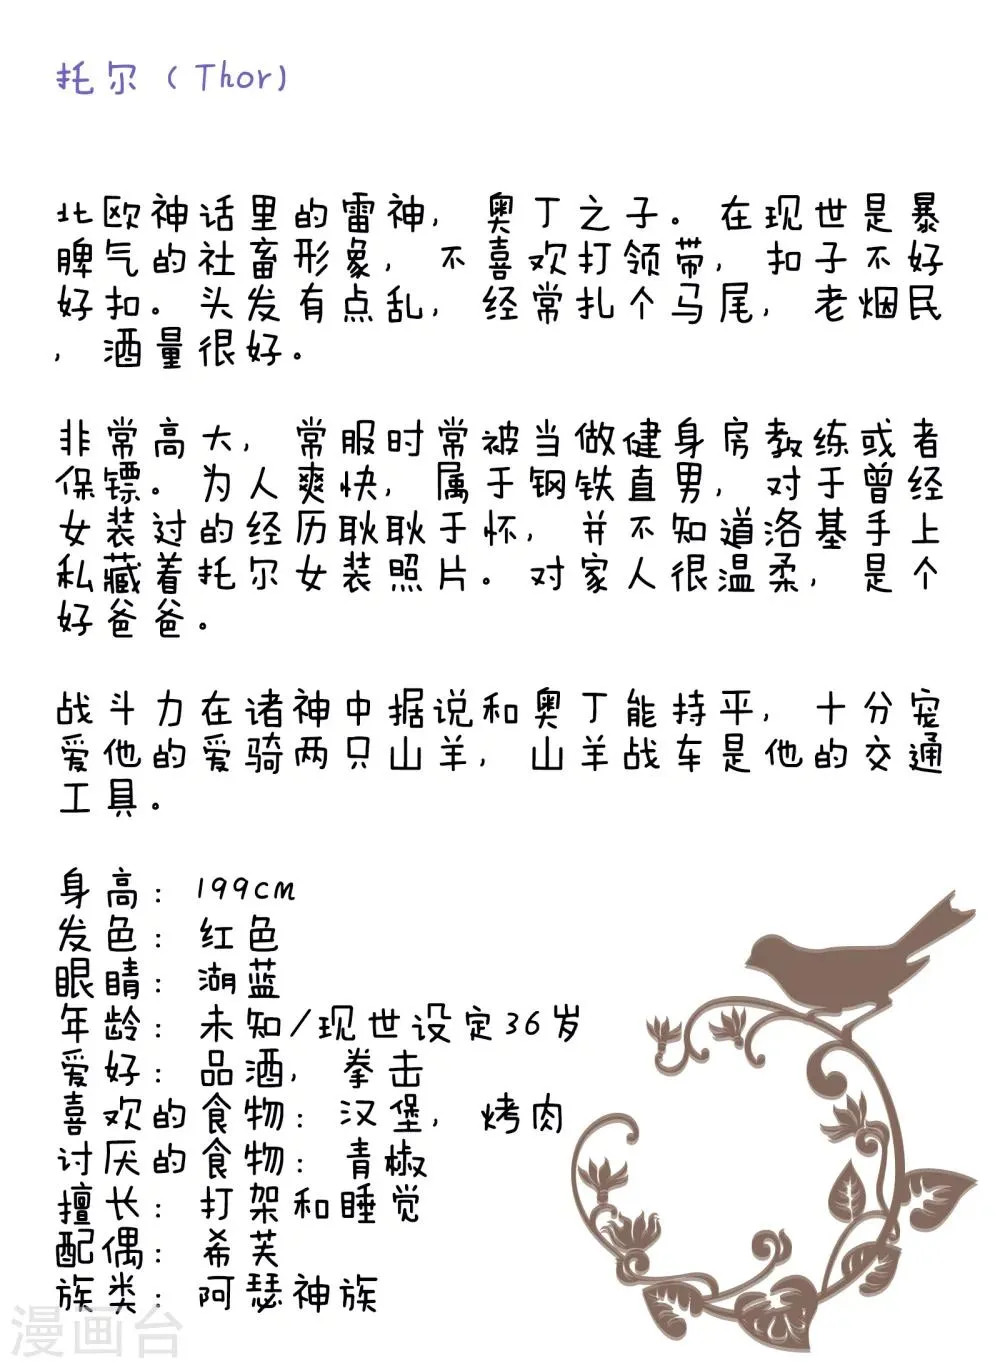 托尔（Thor）
北欧神话里的雷神，奥丁之子。在现世是暴
脾气的社畜形象，不喜欢打领带，扣子不好
好扣。头发有点乱，经常扎个马尾，老烟民
，酒量很好。
非常高大，常服时常被当做健身房教练或者
保镖。为人爽快，属于钢铁直男，对于曾经
女装过的经历耿耿于怀，并不知道洛基手上
私藏着托尔女装照片。对家人很温柔，是个
好爸爸。
战斗力在诸神中据说和奥丁能持平，十分宠
爱他的爱骑两只山羊，山羊战车是他的交通
工具。
身高：199cm
发色：红色
眼睛：湖蓝
年龄：未知/现世设定36岁
爱好：品酒，拳击
喜欢的食物：汉堡，烤肉
讨厌的食物：青椒
擅长：打架和睡觉
配偶：希芙
族类：阿瑟神族
漫画台